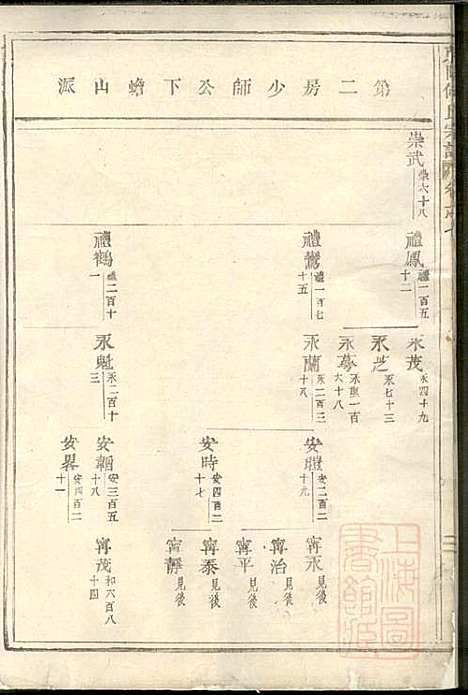 第二房少師公下蟾山派
崇武 崇六十八
禮鳳 禮一百五十二
禮鸞 禮一百七十五
禮鶴 禮二百十一
永茂 永四十九
永芝 永七十三
永蓁 永一百六十八
永蘭 永二百三十八
永魁 永二百十三
安 安二百二十九
安時 安四百二十七
安 安三百五十八
安 安四百二十一
甯永 見後
甯治 見後
甯平 見後
甯泰 見後
甯靜 見後
甯茂 和六百八十四
上海圖書館藏